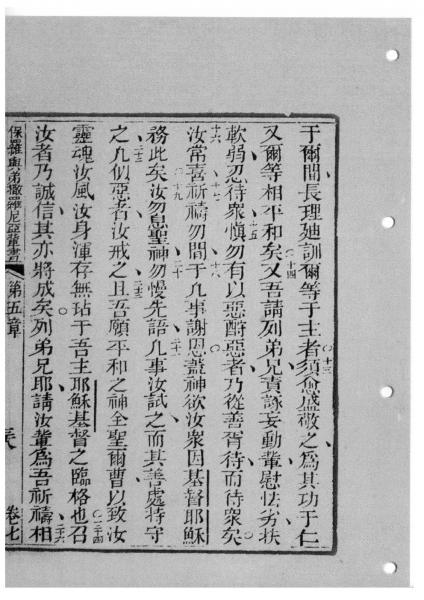 于爾間長理廸訓爾等于主者須愈盛敬之為其功于仁
十三
又爾等相平和矣又吾請列弟兄責詠妄動輩慰怯劣扶
十四
軟弱忍待眾慎勿有以惡酧惡者乃從善胥待而待眾矣
十五
汝常喜祈禱勿間于凡事謝恩葢神欲汝眾因基督耶穌
十六 十七 十八
務此矣汝勿息聖神勿慢先語凡事汝試之而其善處持守
十九 二十 二十一
之凡似惡者汝戒之且吾願平和之神全聖爾曹以致汝
二十二 二十三
靈魂汝風汝身渾存無玷于吾主耶穌基督之臨格也召
二十四
汝者乃誠信其亦將成矣列弟兄耶請汝輩為吾祈禱相
二十五 二十六
保羅與弟撒羅尼亞輩書 第五章 卷七